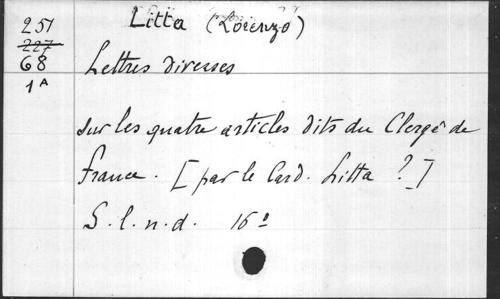 Litta (Lorenzo)
251
227
68
1A
Lettres diverses
sur les quatre articles dits du Clergé de
France. [par le Card. Litta ?]
S.l.n.d. 16º